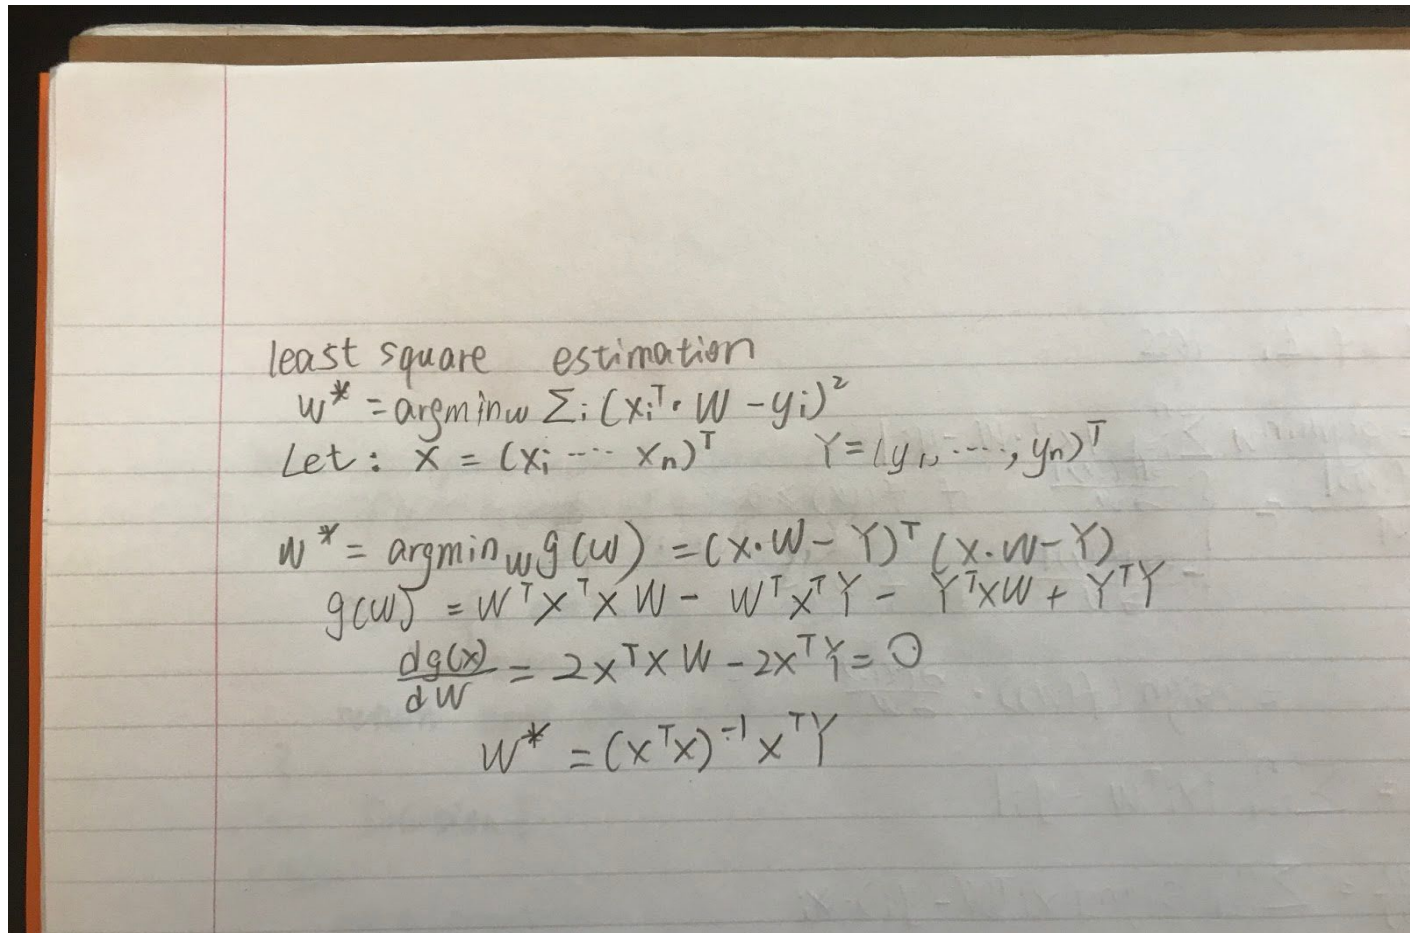 least square estimation
w* = argmin_w Σ_i (x_i^T · W − y_i)^2
Let : X = (x_i ···· x_n)^T Y = (y_1, ····, y_n)^T
W* = argmin_W g(w) = (X·W − Y)^T (X·W − Y)
g(w) = W^T X^T X W − W^T X^T Y − Y^T X W + Y^T Y
dg(x)/dW = 2X^T X W − 2X^T Y = 0
W* = (X^T X)^-1 X^T Y